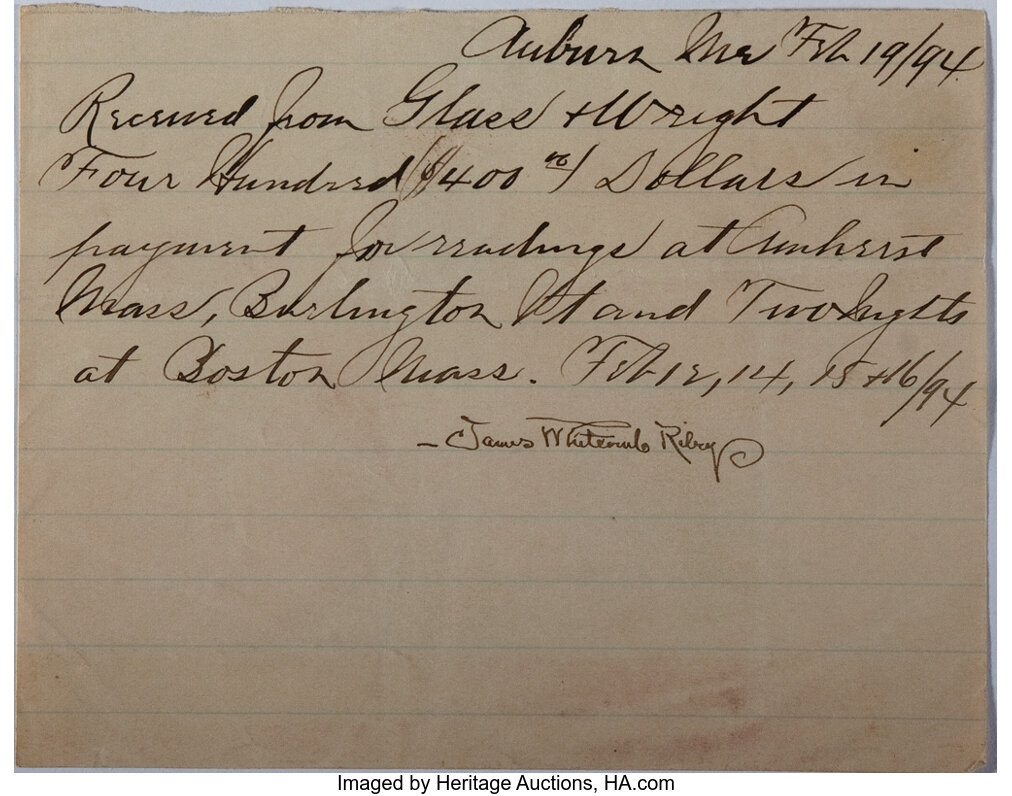 Auburn Me Feb 19/94
Received from Glass + Wright
Four Hundred ($400 00/) Dollars in
payment for readings at Amherst
Mass, Burlington Vt and Two Nights
at Boston Mass. Feb 12, 14, 15 + 16/94
- James Whitcomb Riley
Imaged by Heritage Auctions, HA.com